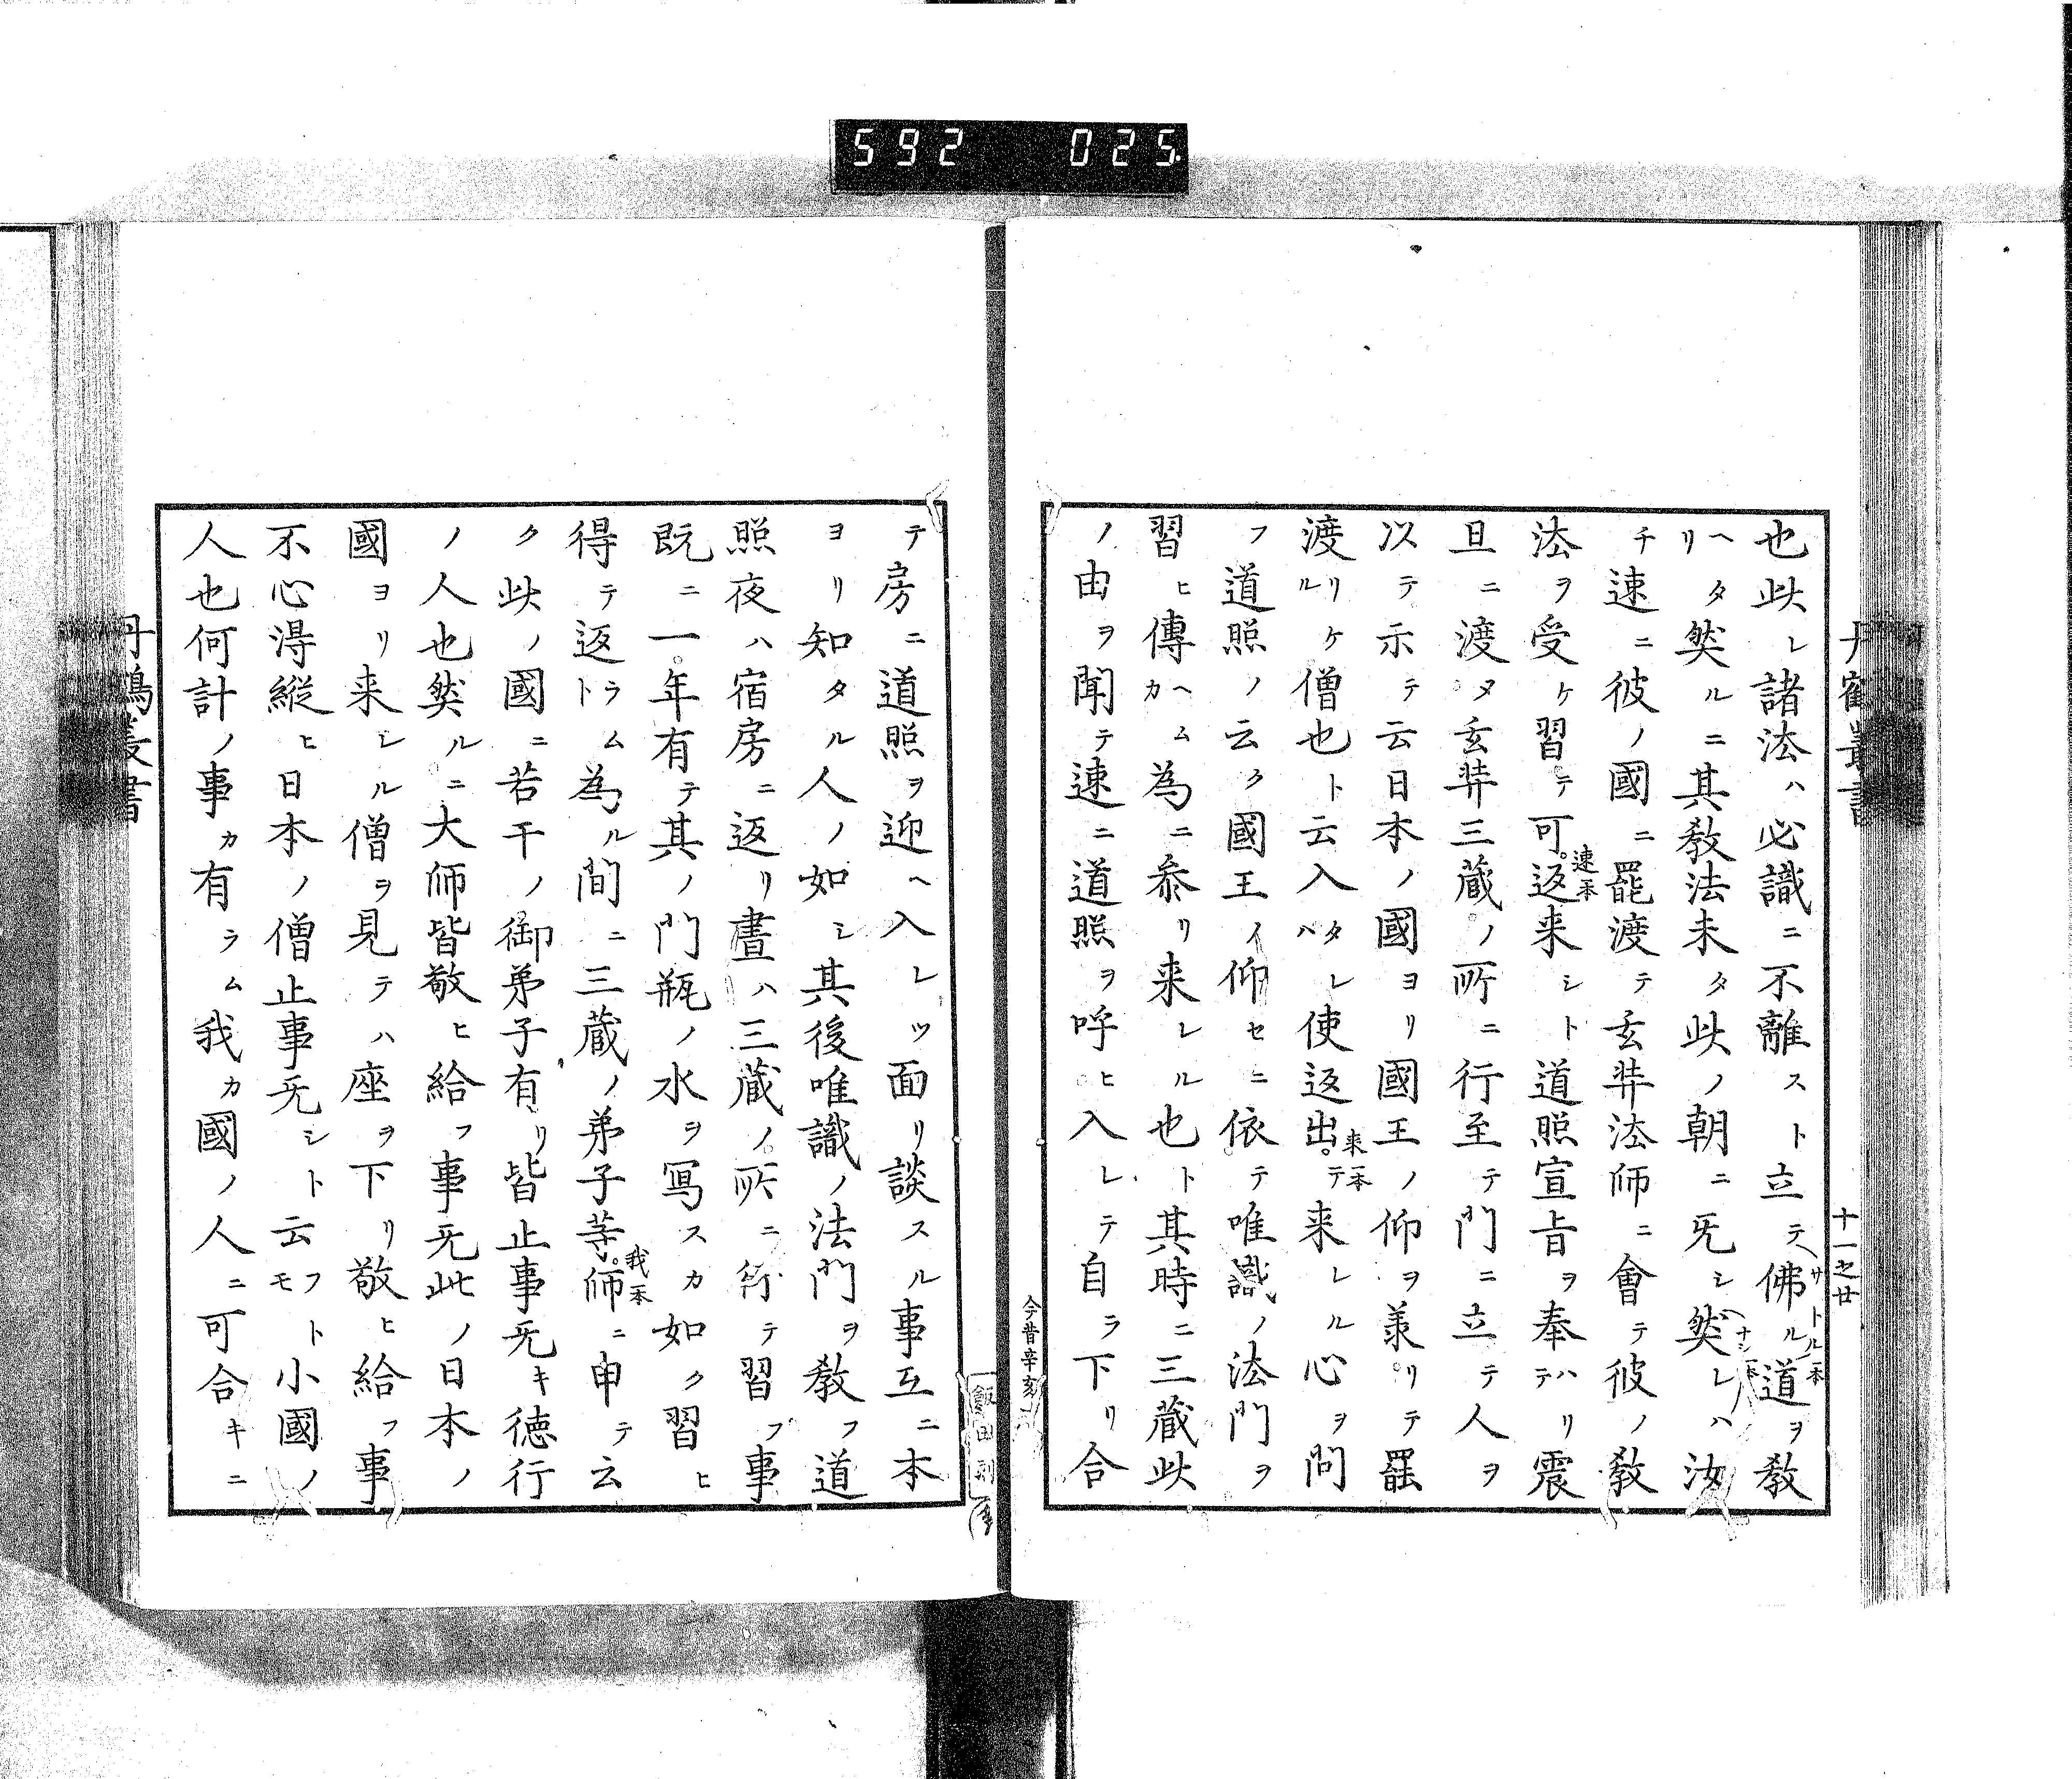 592 025
丹鶴叢書
十一之廿
也此レ諸法ハ必識ニ不離スト立テ佛ル道ヲ教
サトル一本
ヘタリ然ルニ其教法未タ此ノ朝ニ旡シ然レハ汝
ナシ一本
チ速ニ彼ノ國ニ罷渡テ玄弉法師ニ會テ彼ノ教
法ヲ受ケ習テ可返来シト道照宣旨ヲ奉ハリテ震
速一本
旦ニ渡ヌ玄弉三蔵ノ所ニ行至テ門ニ立テ人ヲ
以テ示テ云日本ノ國ヨリ國王ノ仰ヲ羕リテ罷
渡リケル僧也ト云入タレハ使返出テ来レル心ヲ問
来一本
フ道照ノ云ク國王イ仰セニ依テ唯識ノ法門ヲ
習ヒ傳ヘムカ為ニ叅リ来レル也ト其時ニ三蔵此
ノ由ヲ聞テ速ニ道照ヲ呼ヒ入レテ自ラ下リ合
今昔辛亥
飯田刻
テ房ニ道照ヲ迎ヘ入レツ面リ談スル事互ニ本
ヨリ知タル人ノ如シ其後唯識ノ法門ヲ教フ道
照夜ハ宿房ニ返リ晝ハ三蔵ノ所ニ行テ習フ事
既ニ一年有テ其ノ門瓶ノ水ヲ写スカ如ク習ヒ
得テ返ラムト為ル間ニ三蔵ノ弟子等師ニ申テ云
我一本
ク此ノ國ニ若干ノ御弟子有リ皆止事旡キ徳行
ノ人也然ルニ大師皆敬ヒ給フ事旡此ノ日本ノ
國ヨリ来レル僧ヲ見テハ座ヲ下リ敬ヒ給フ事
不心得縦ヒ日本ノ僧止事旡シト云フトモ小國ノ
人也何計ノ事カ有ラム我カ國ノ人ニ可合キニ
丹鶴叢書